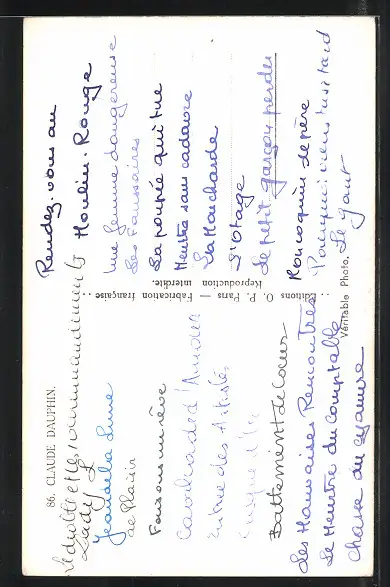 86. CLAUDE DAUPHIN.
Lady L
Jean de la Lune
de Plaisir
Faisons un rêve
Cavalcade d'Amour
Entrée des Artistes
Cirque d'
Battement de Coeur
Les Mauvaises Rencontres
Le Meurtre du Comptable
Chasse du cyanure
Editions O. P. Paris
Fabrication française
Reproduction interdite.
Véritable Photo.
Rendez-vous au
Moulin-Rouge
Une femme dangereuse
Les Faussaires
La poupée qui tue
Meurtre sans cadavre
La Moucharde
L'otage
Le petit garçon perdu
Roncoquin de père
Pourquoi viens tu si tard
Le gant